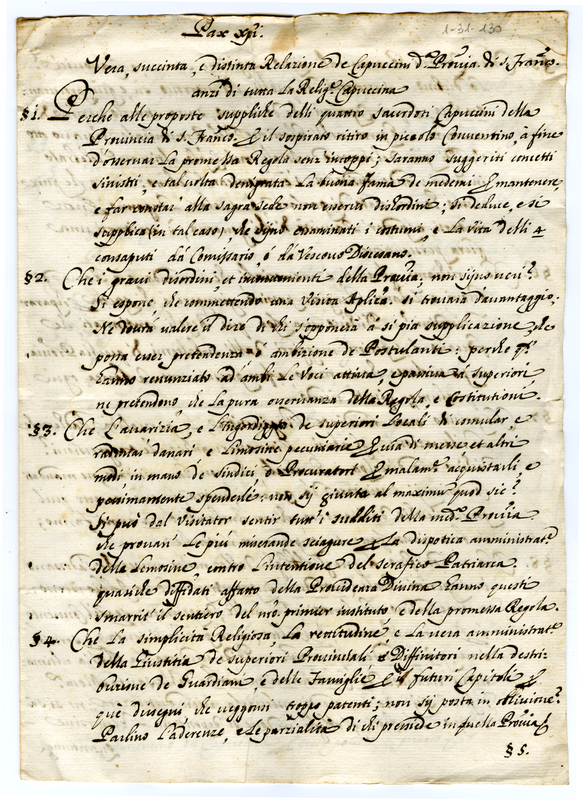 Pax Xpi.
1-31-130
Vera, succinta, e distinta Relazione de Capuccini d.ª Prou.ª di S. Franc.º
anzi di tutta la Relig.ᵉ Capuccina
§1. Perche alle proposte suppliche delli quattro sacerdoti Capuccini della
Prouincia di S. Franc.º il sospirato ritiro in piccolo Conuentino, à fine
d'osseruar la promessa Regola senz'intoppi; saranno suggeriti concetti
sinistri, e tal uolta denigrata la buona fama de medemi mantenere,
e far constar alla sagra sede non esserui disordini; si deduce, e si
supplica (in tal caso) che sijno esaminati i costumi, e la uita delli 4
consaputi dà Comissario, ó dà Vescouo Diocesano.
§2. Che i graui disordini, et della Prou.ª, non sijno ueri?
Si espone che commettendo una Visita Aplica, si trouarà d'auuantaggio:
Ne dourà ualere il dire di chi s'opponerà à si pia supplicazione, che
possa esser pretendenza ó ambizione de Postulanti: perche
hanno renunziato ad ambi le Voci attiua, e passiua à superiori,
ne pretendono che la pura osseruanza della Regola, e Costituzioni.
§3. Che l'auarizia, e l'ingordiggia de superiori Locali di cumular, e
radunar danari, e limosine pecuniarie uia di messe, et altri
modi in mano de sindici ó Procuratori malam.ᵉ acquistarli, e
pessimamente spenderle: non sij giunta al maximum quod sic?
Si può dal Visitator sentir tutt'i sudditi della med.ª Prou.ª
che prouan le più miserande sciagure la dispotica amministrat.ᵉ
delle lemosine contro l'intentione del serafico Patriarca.
quasiche diffidati affatto della Prouidenza Diuina hanno questi
smarrit'il sentiero del nro primier instituto e della promessa Regola.
§4. Che la simplicità Religiosa, la rettitudine, e la uera amministrat.ᵉ
della Giustitia de superiori Prouinciali e Diffinitori nella destri-
buzione de Guardiani e delle Famiglie, il futuri Capitoli
que disegni che ueggonsi troppo patenti; non sij posta in obliuione?
Paulino Laderenze, e le parzialità di chi presiede in quella Prou.ª
§5.